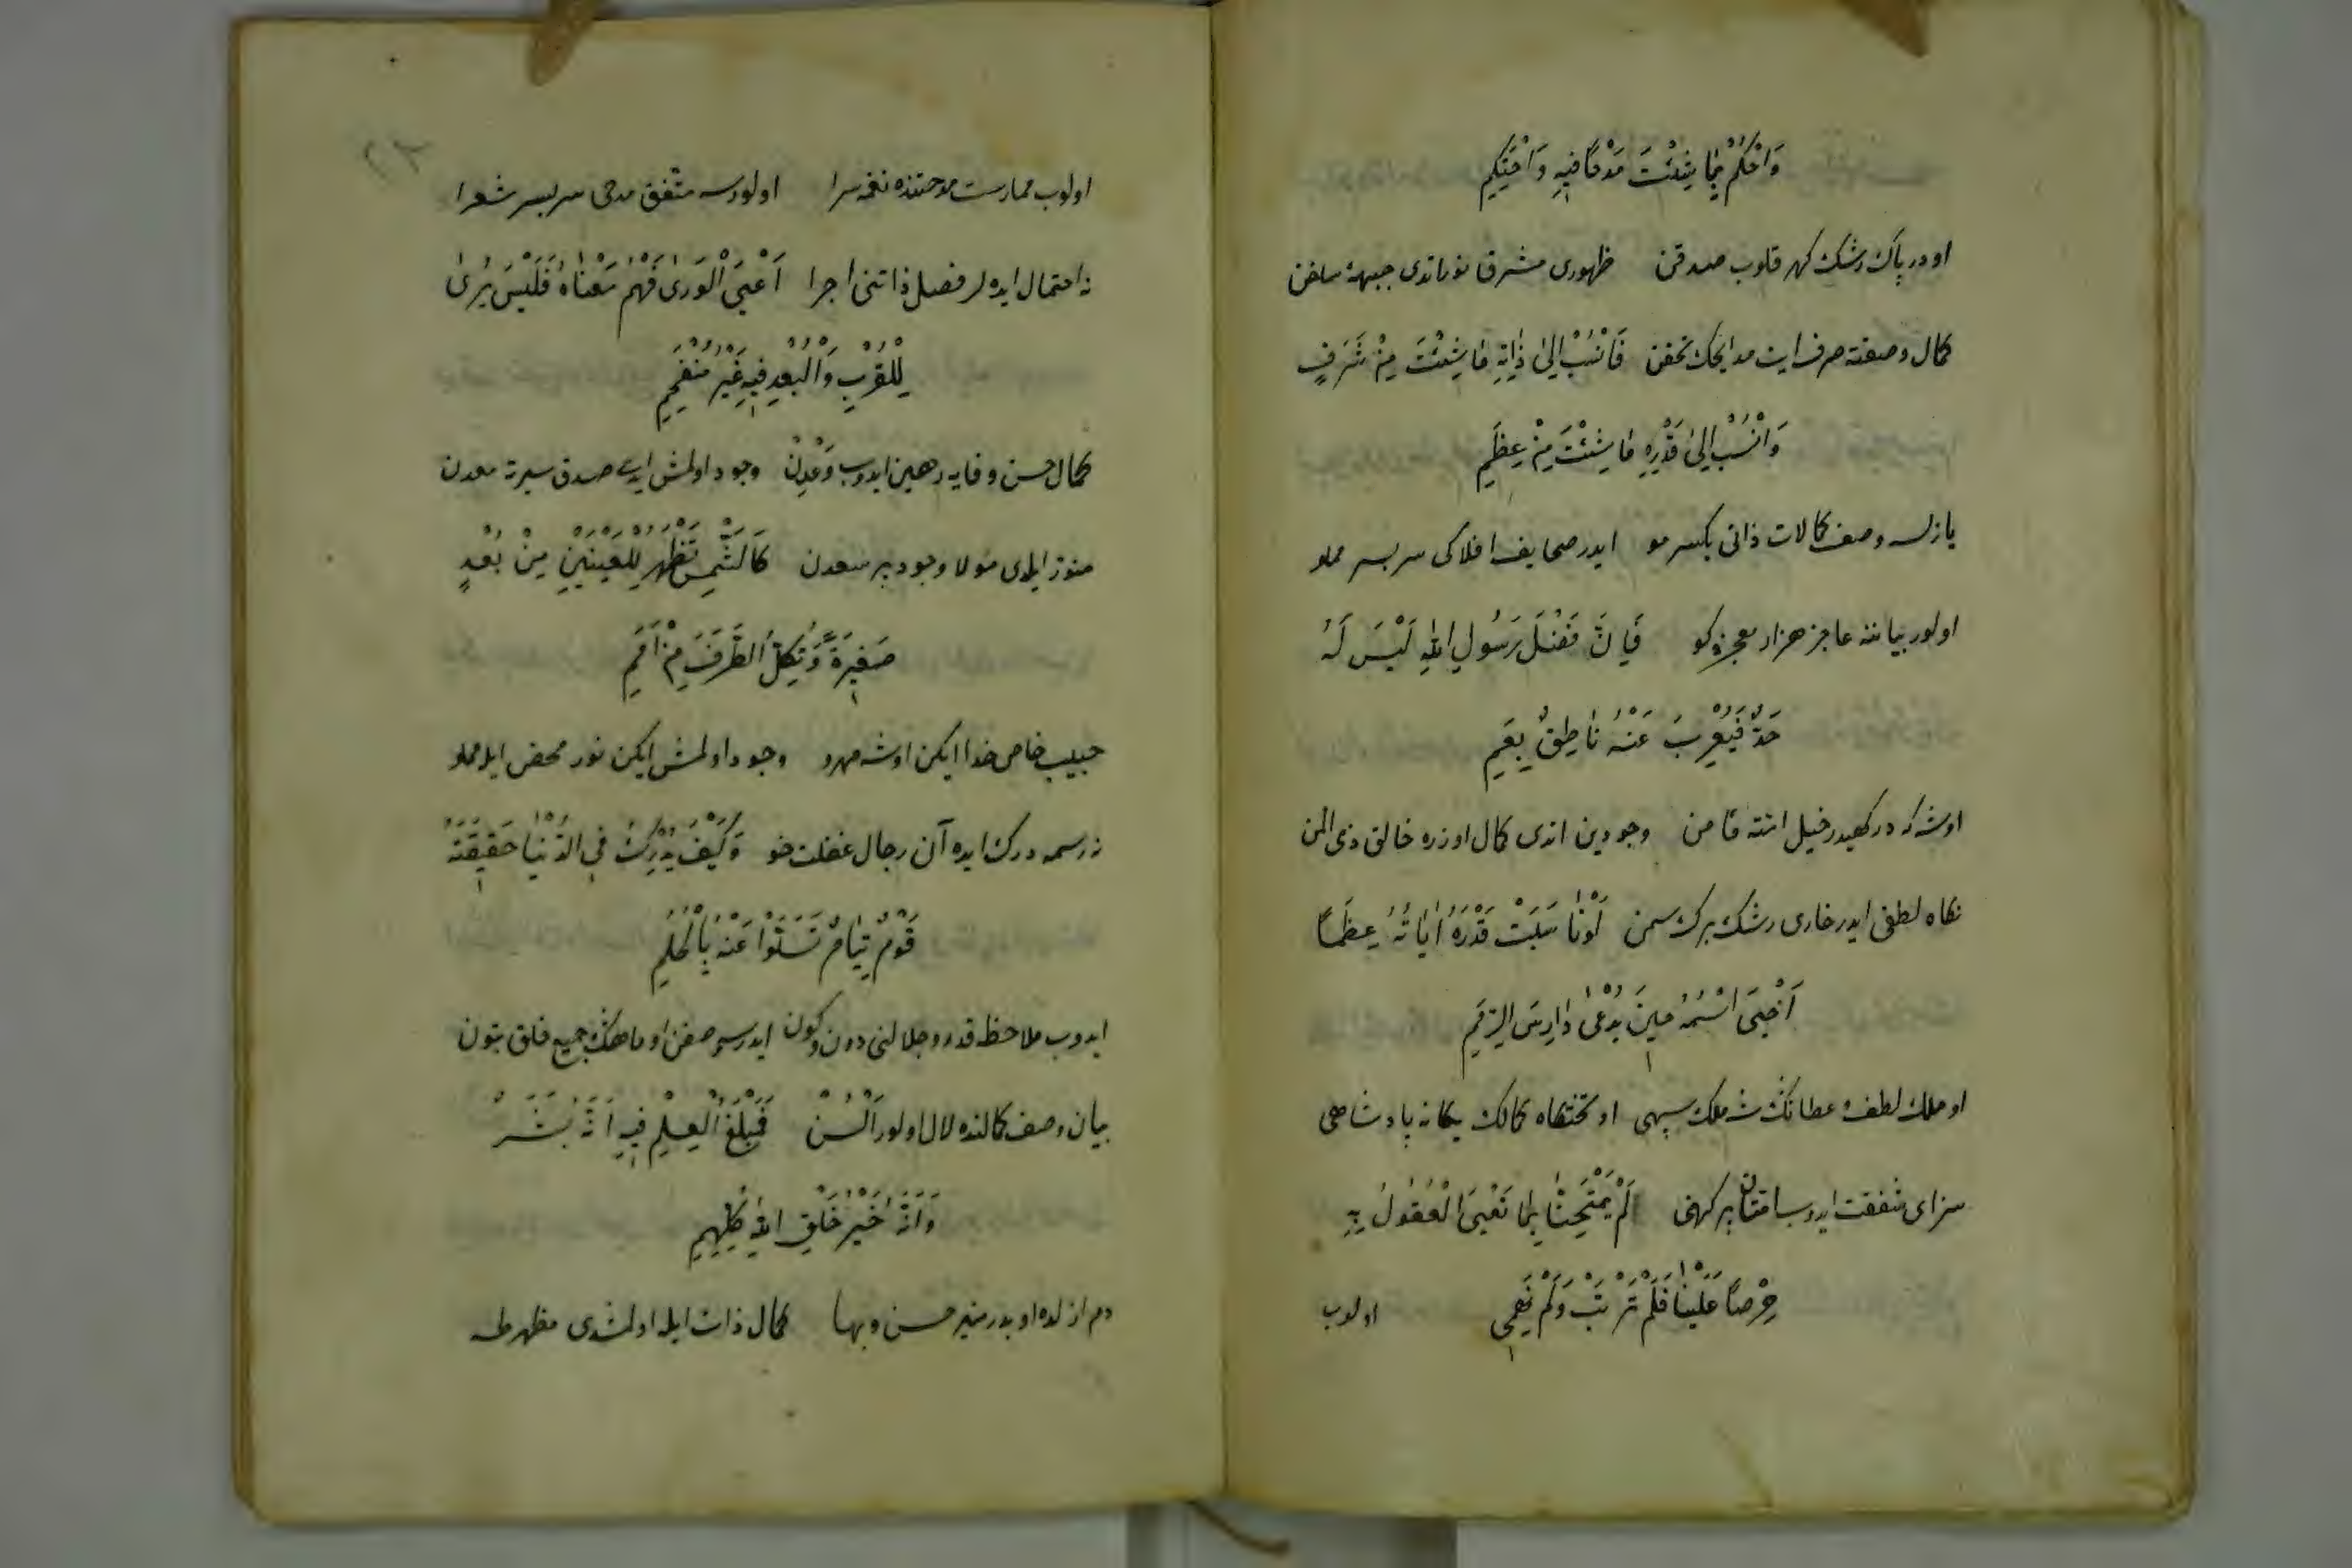 وَاحْكُمْ بِمَا شِئْتَ مَدْحًا فِيهِ وَاحْتَكِمِ
او در پاك رشك كهر قلوب صدقن ظهورى مشرق نور اتدى جبههٔ
كمال وصفنه صرف ايت مدايحك فَانْسُبْ اِلَىٰ ذَاتِهِ مَا شِئْتَ مِنْ شَرَفٍ
وَانْسُبْ اِلَىٰ قَدْرِهِ مَا شِئْتَ مِنْ عِظَمِ
يازلسه وصف كمالات ذاتى يكسر مو ايدر صحايف افلاكى سر بسر مملو
اولور بياننه عاجز هزار معجزه كو فَاِنَّ فَضْلَ رَسُولِ اللهِ لَيْسَ لَهُ
حَدٌّ فَيُعْرِبَ عَنْهُ نَاطِقٌ بِفَمِ
اوشه كه در كهيدر خيل انته مامن وجودين اتدى كمال اوزره خالق ذى المن
نكاه لطفى ايدر خارى رشك برك سمن لَوْنَا سَبَتْ قَدْرَهُ اٰيَاتُهُ عِظَمًا
اَحْيَى اسْمُهُ حِينَ يُدْعٰى دَارِسَ الرِّمَمِ
او ملك لطف و عطانك شه ملك سپهى او تختكاه كمالك يكانه پادشاهى
سزاى شفقت ايدوب امتان پر كنهى لَمْ يَمْتَحِنَّا بِمَا تَعْيَى الْعُقُولُ بِهِ
حِرْصًا عَلَيْنَا فَلَمْ نَرْتَبْ وَلَمْ نَهِمِ
اولوب
اولوب ممارست مدحتنده نغمه سرا اولورسه متّفق مدحى سربسر شعرا
نه احتمال ايده لر فضل ذاتنى اجرا اَعْيَى الْوَرٰى فَهْمُ مَعْنَاهُ فَلَيْسَ يُرٰى
لِلْقُرْبِ وَالْبُعْدِ فِيهِ غَيْرُ مُنْفَحِمِ
كمال حسن وفايه رهين ايدوب وجود اولمش ايدى صدق سيرته معدن
منوّر ايلدى مولا وجود كَالشَّمْسِ تَظْهَرُ لِلْعَيْنَيْنِ مِنْ بُعُدٍ
صَغِيرَةً وَتُكِلُّ الطَّرْفَ مِنْ اَمَمِ
حبيب خاص خدا ايكن اوشه مهرو وجود اولمش ايكن نور محض ايله مملو
نه رسمه درك ايده آن رجال غفلت خو وَكَيْفَ يُدْرِكُ فِي الدُّنْيَا حَقِيقَتَهُ
قَوْمٌ نِيَامٌ تَسَلَّوْا عَنْهُ بِالْحُلُمِ
ايدوب ملاحظه قدر و جلالنى جميع خلق بتون
بيان وصف كمالنده لال اولور اَلْسُنْ فَمَبْلَغُ الْعِلْمِ فِيهِ اَنَّهُ بَشَرٌ
وَاَنَّهُ خَيْرُ خَلْقِ اللهِ كُلِّهِمِ
دم ازلده او بدر منير حسن وبها كمال ذات ايله اولمشدى مظهر طه